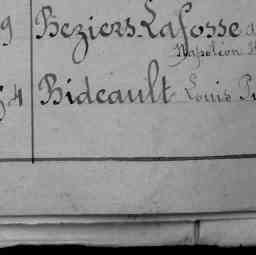 9 Beziers-Lafosse
Napoléon
4 Bideault Louis